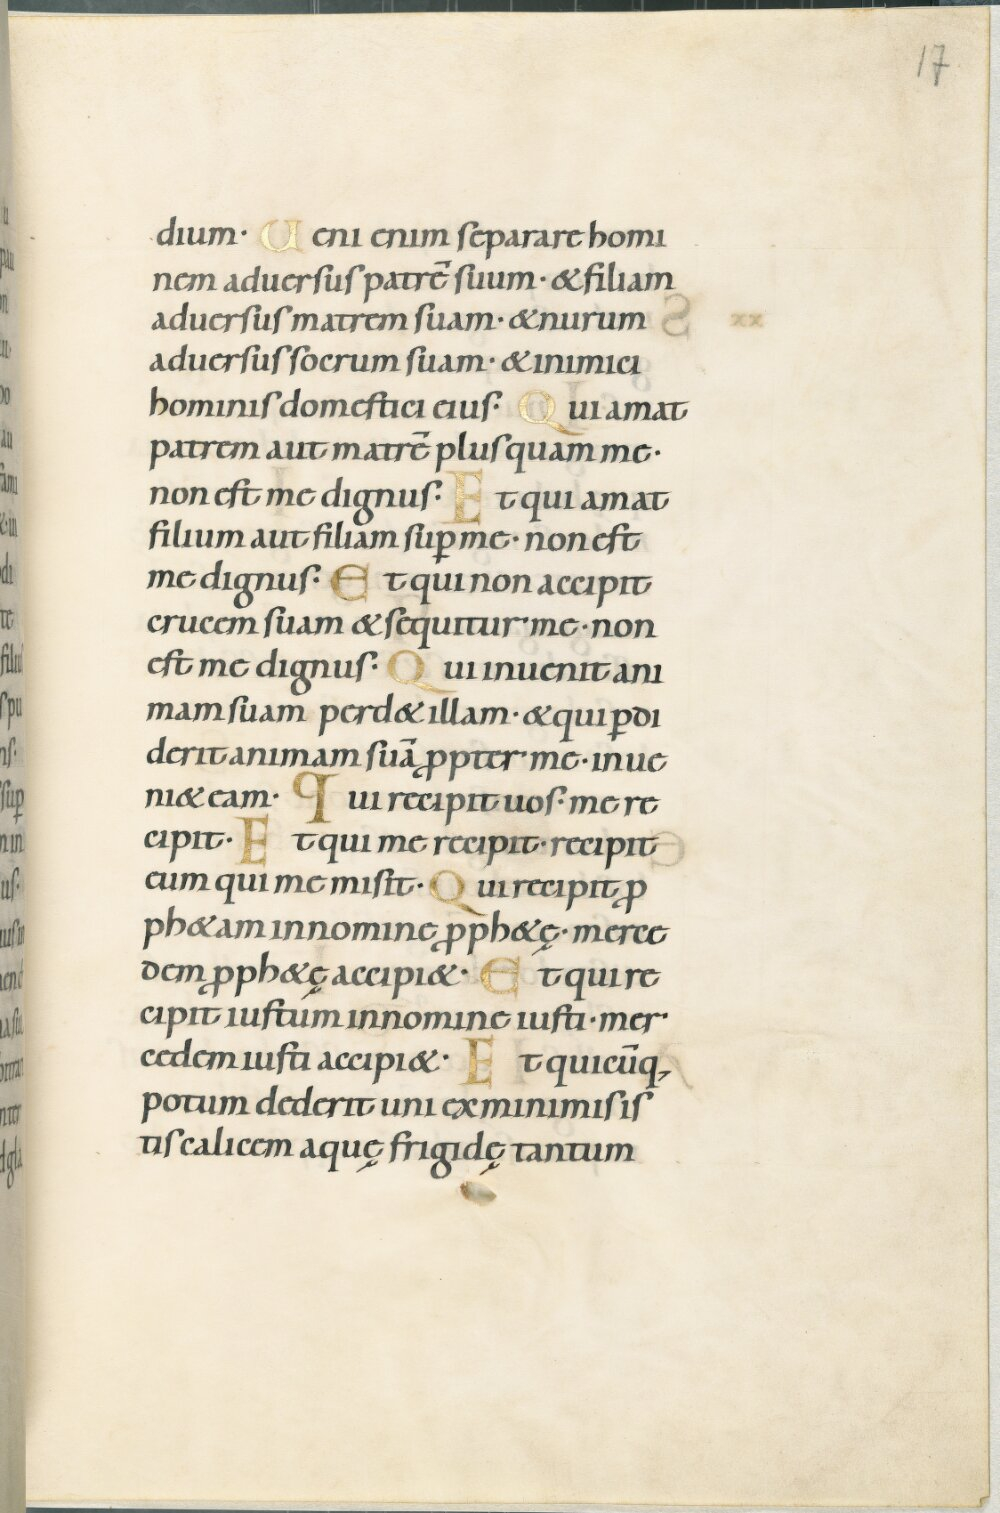 17
dium· Ueni enim separare homi
nem aduersus patrē suum· & filiam
aduersus matrem suam· & nurum
aduersus socrum suam· & inimici
hominis domestici eius· Qui amat
patrem aut matrē plus quam me·
non est me dignus· Et qui amat
filium aut filiam sup̄ me· non est
me dignus· Et qui non accipit
crucem suam & sequitur me· non
est me dignus· Qui inuenit ani
mam suam perd& illam· & qui ꝑdi
derit animam suā ꝓpter me· inue
ni& eam· Qui recipit uos· me re
cipit· Et qui me recipit· recipit
eum qui me misit· Qui recipit ꝓ
ph&am in nomine ꝓph&ę· merce
dem ꝓph&ę accipi&· Et qui re
cipit iustum in nomine iusti· mer
cedem iusti accipi&· Et quicūq,
potum dederit uni ex minimis is
tis calicem aquę frigidę tantum